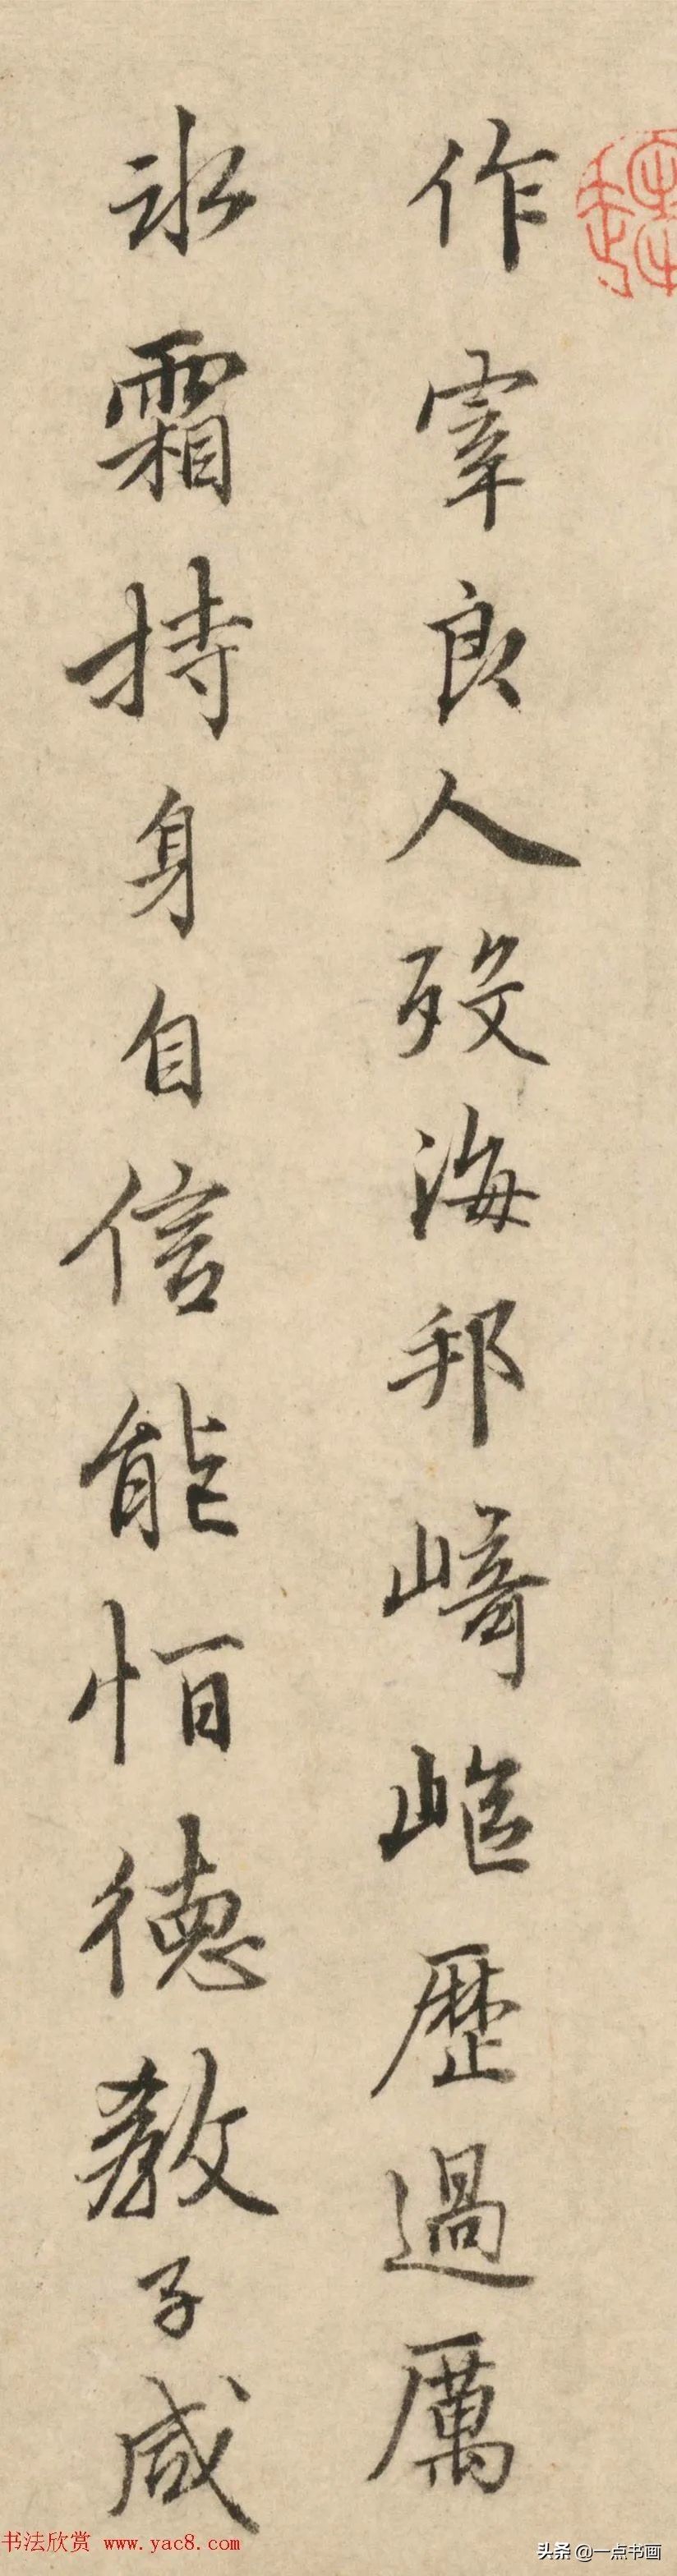 作宰良人歿海邦崎嶇歷過厲
冰霜持身自信能恒德教子咸
书法欣赏 www.yac8.com
头条 @一点书画